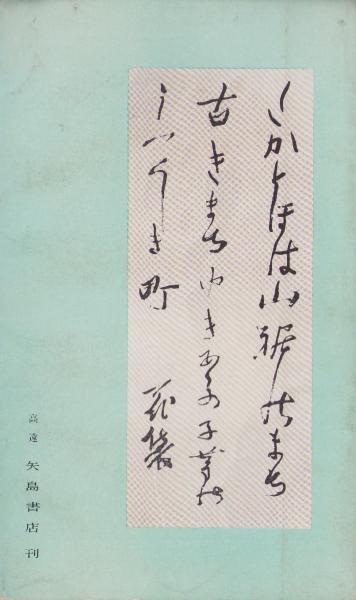 たかとほは山裾のまち
古きまちゆきあふ子等の
うつくしき町 花袋
高遠 矢島書店刊